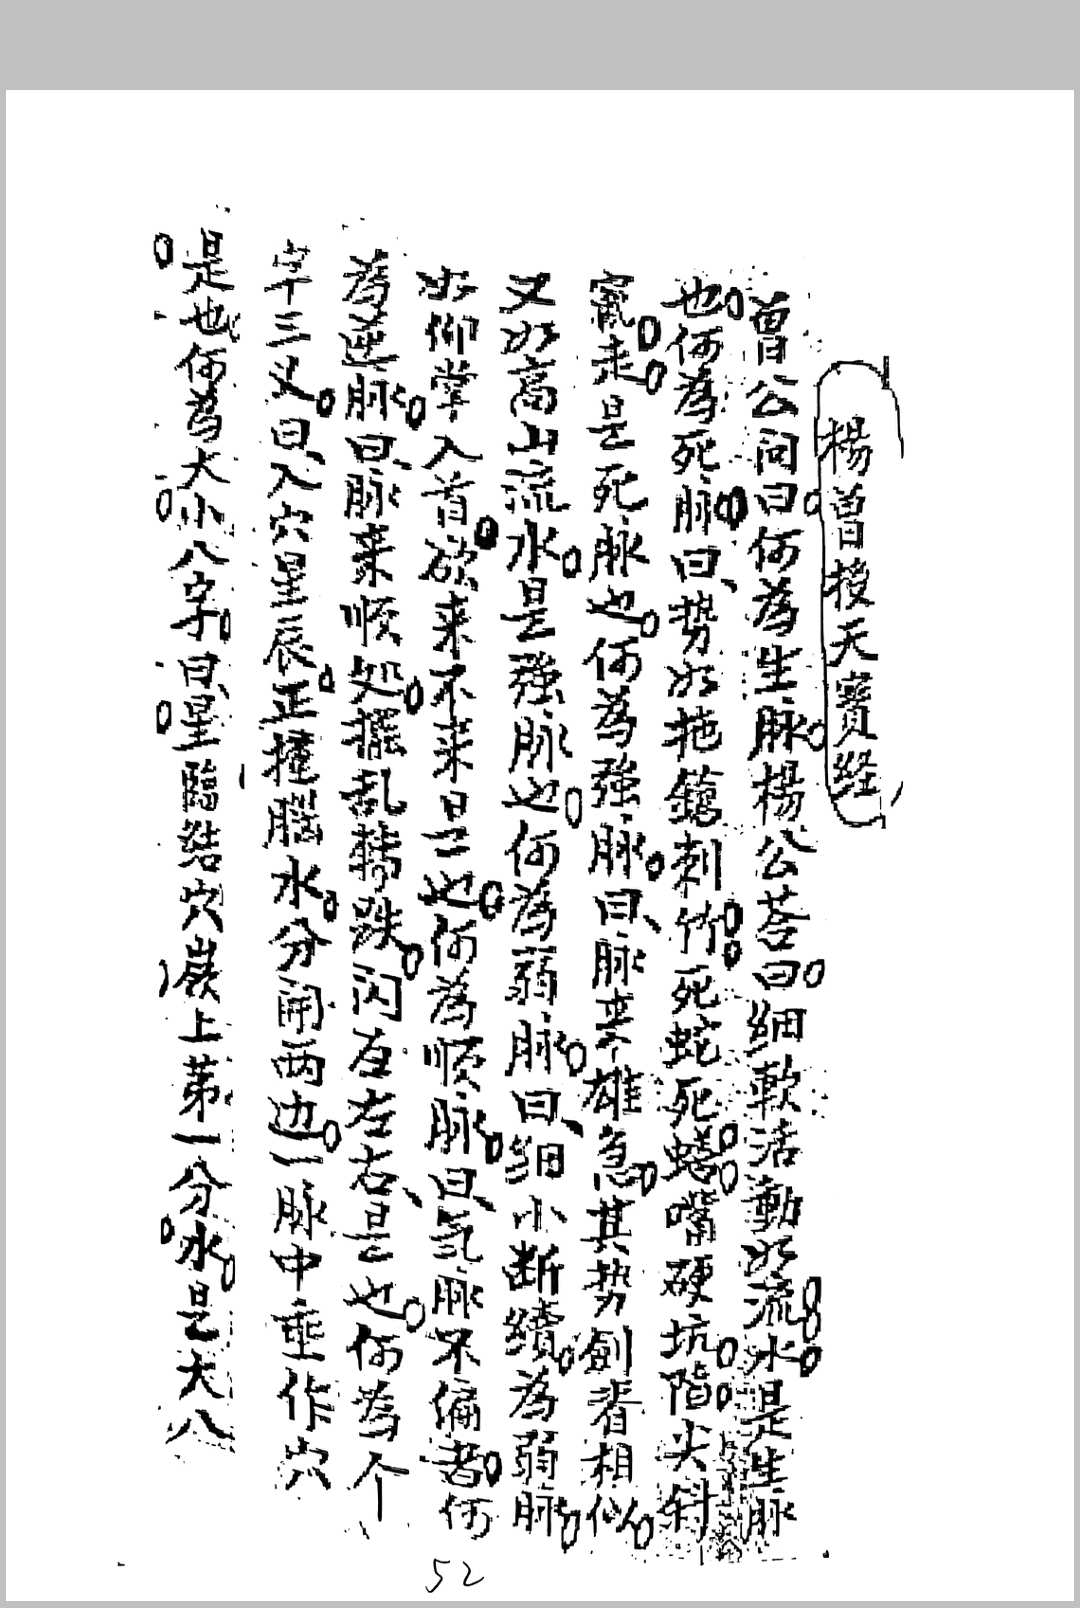 楊曾授天寳経
曾公问曰何為生脉楊公荅曰细軟活動如流水是生脉
也何為死脉曰势如拖鎗刺竹死蛇死蟮嘴硬坑階尖斜
竄走是死脉也何為強脉曰脉来雄急其势劍脊相似
又如高山流水是強脉也何為弱脉曰细小断續為弱脉
如仰掌入首欲来不来是也何為順脉曰氣脉不偏者何
為逆脉曰脉来順处擺乱跌闪左右是也何為个
字三义曰入穴星辰正撞腦水分開两边一脉中垂作穴
是也何為大小八字曰星臨结穴巅上第一分水是大八
52